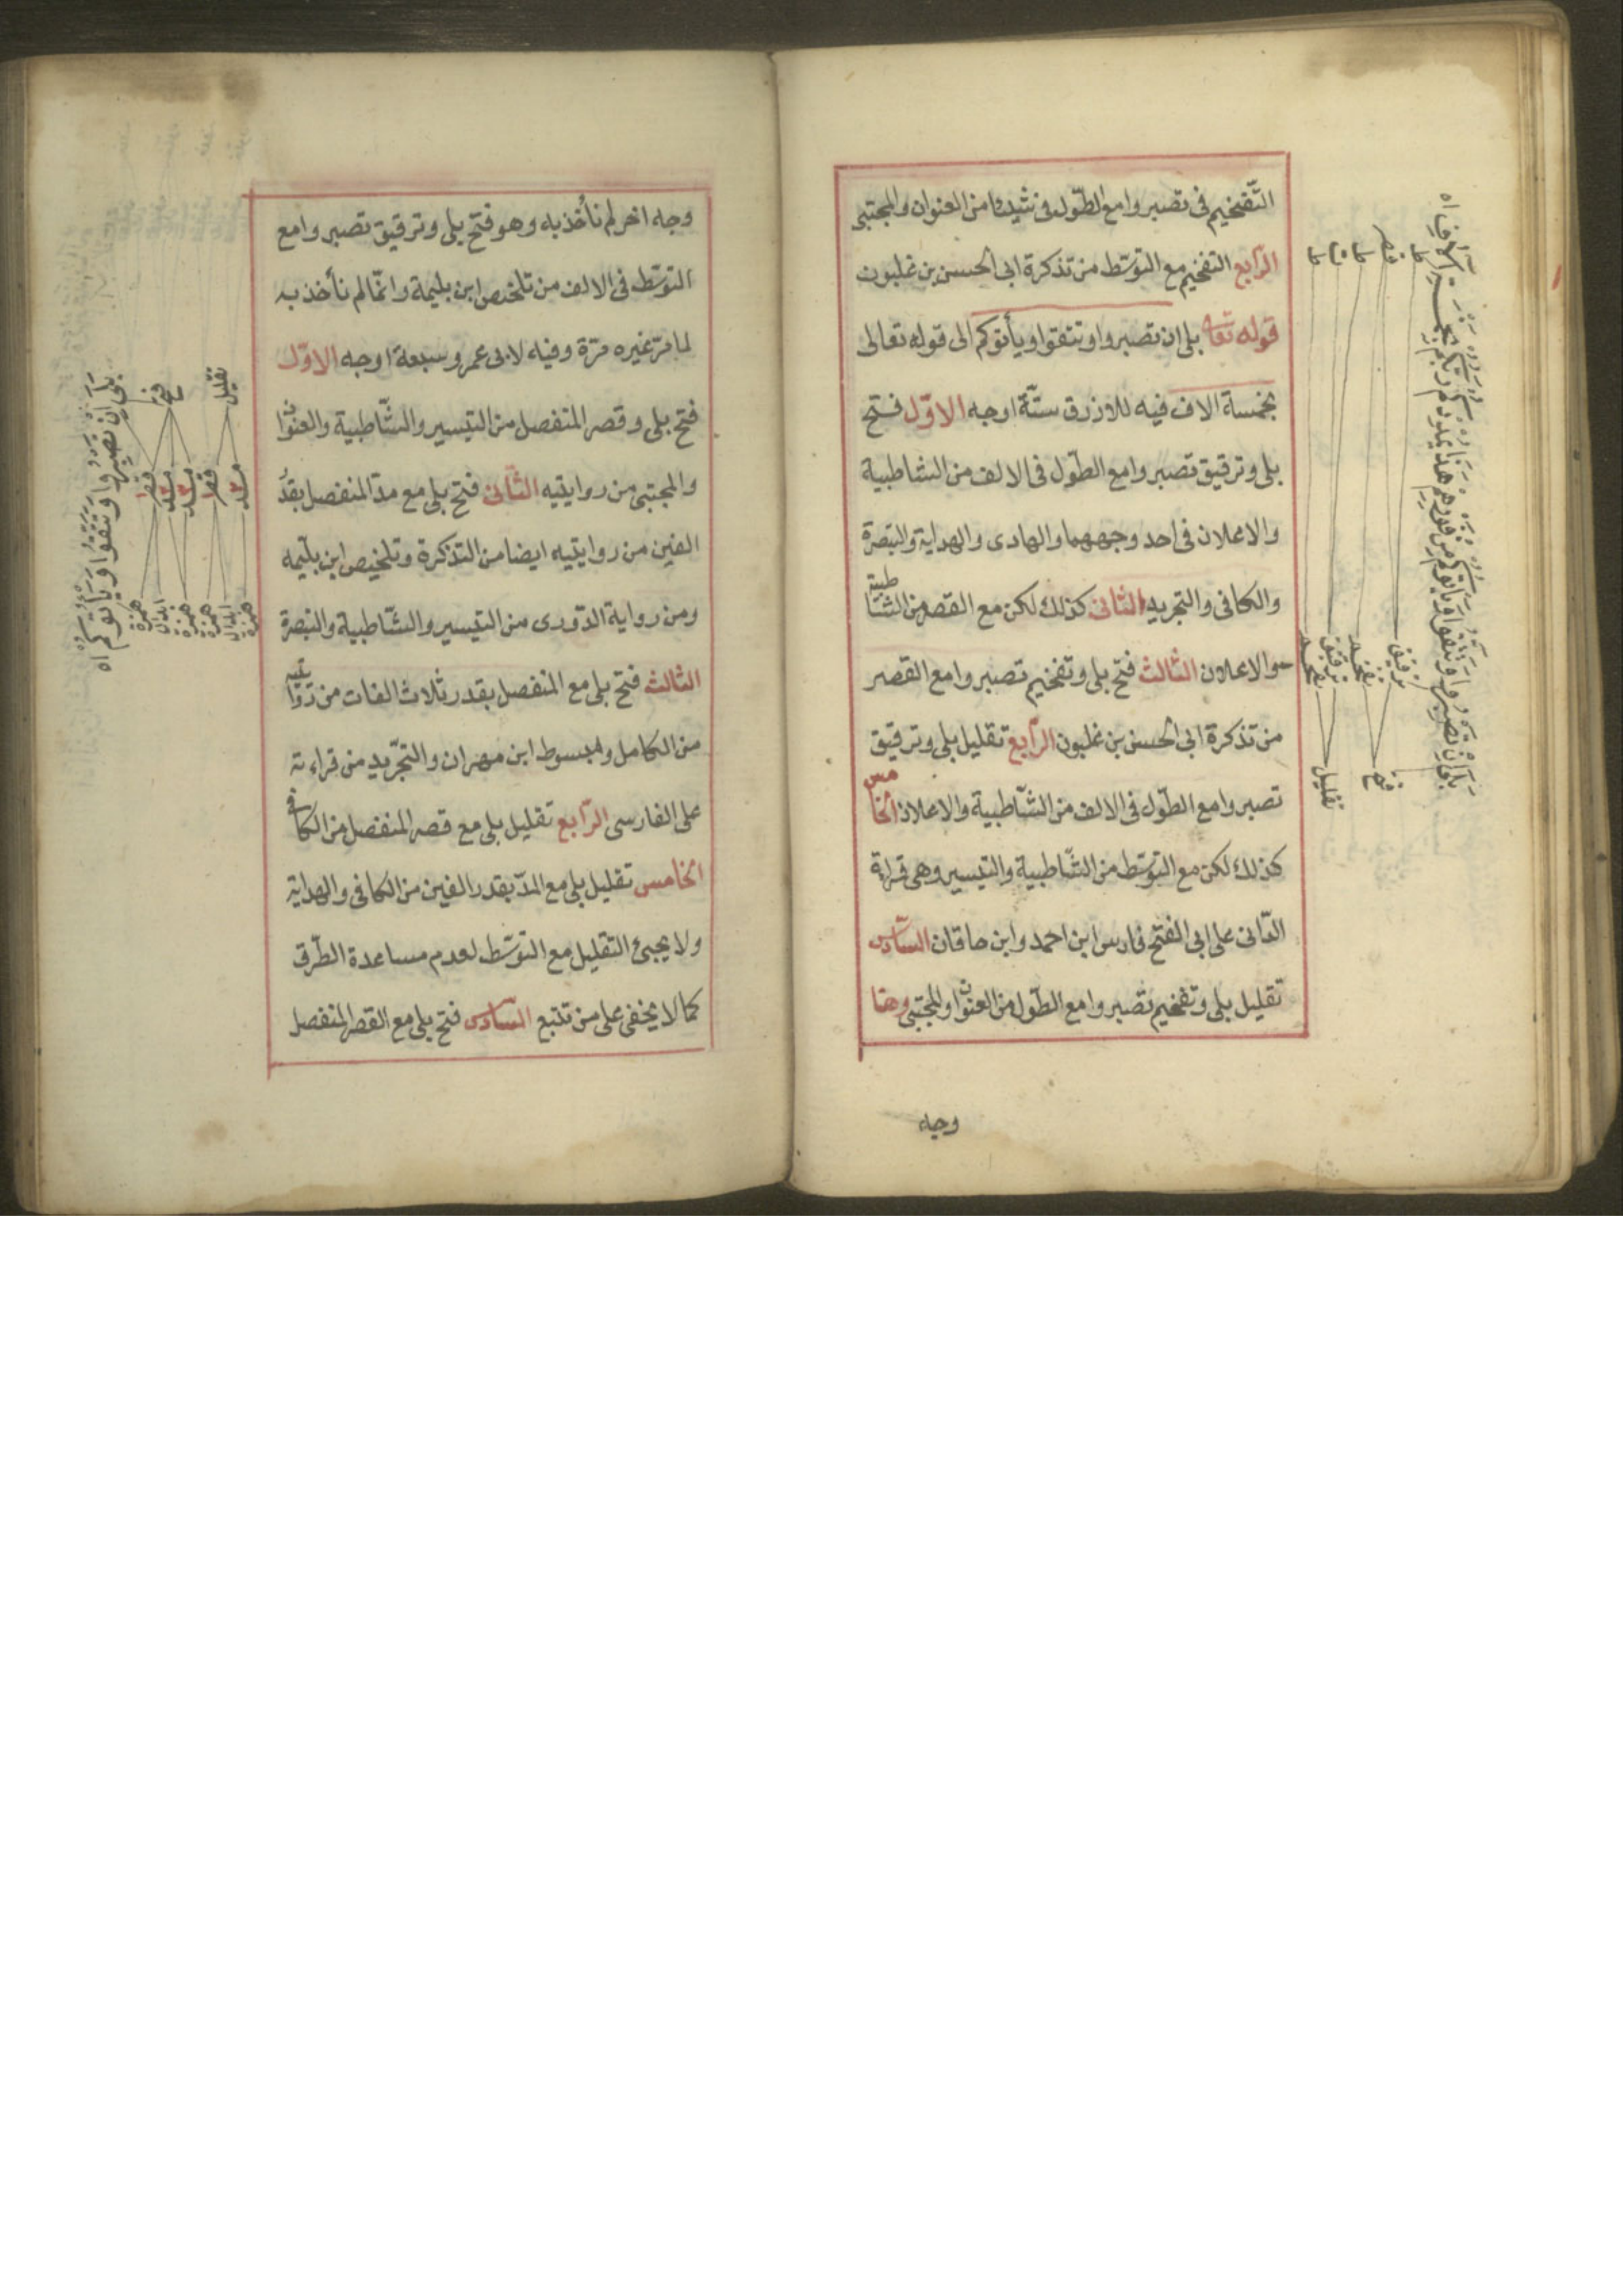 التّفخيم فى تصبروا مع الطّول فى شيئا من العنوان والمجتبى
الرّابع التفخيم مع التوسّط من تذكرة ابى الحسن بن غلبون
قوله تعا بلى ان تصبروا وتتقوا ويأتوكم الى قوله تعالى
بخمسة الاف فيه للازرق ستّة اوجه الاوّل فتح
بلى وترقيق تصبروا مع الطّول فى الالف من الشاطبية
والاعلان فى احد وجههما والهادى والهداية والتبصرة
والكافى والتجريد الثّانى كذلك لكن مع القصر من الشّاطبية
والاعلان الثّالث فتح بلى وتفخيم تصبروا مع القصر
من تذكرة ابى الحسن بن غلبون الرّابع تقليل بلى وترقيق
تصبروا مع الطّول فى الالف من الشّاطبية والاعلان الخامس
كذلك لكن مع التوسّط من الشّاطبية والتيسير وهى قراءة
الدّانى على ابى الفتح فارس ابن احمد وابن خاقان السّادس
تقليل بلى وتفخيم تصبروا مع الطّول من العنوان والمجتبى وهنا
وجه
بلى ان تصبروا وتتقوا ويأتوكم من فورهم هذا يمددكم ربكم بخمسة الاف اه
فتح تقليل
ترقيق تفخيم ترقيق تفخيم
وجه اخر لم نأخذ به وهو فتح بلى وترقيق تصبروا مع
التوسّط فى الالف من تلخيص ابن بليمة وانّما لم نأخذ به
لما مرّ غيره مرّة وفيه لابى عمرو سبعة اوجه الاوّل
فتح بلى وقصر المنفصل من التيسير والشّاطبية والعنوان
والمجتبى من روايتيه الثّانى فتح بلى مع مدّ المنفصل بقدر
الفين من روايتيه ايضا من التذكرة وتلخيص ابن بليمه
ومن رواية الدّورى من التيسير والشّاطبية والتبصرة
الثالث فتح بلى مع المنفصل بقدر ثلاث الفات من روايتيه
من الكامل والمبسوط ابن مهران والتجّريد من قراءته
على الفارسى الرّابع تقليل بلى مع قصر المنفصل من الكافى
الخامس تقليل بلى مع المدّ بقدر الفين من الكافى والهداية
ولا يجيئ التقليل مع التوسّط لعدم مساعدة الطّرق
كما لا يخفى على من تتبع السّادس فتح بلى مع القصر المنفصل
بلى ان تصبروا وتتقوا ويأتوكم اه
فتح تقليل
همزة ابدال همزة همزة ابدال همزة